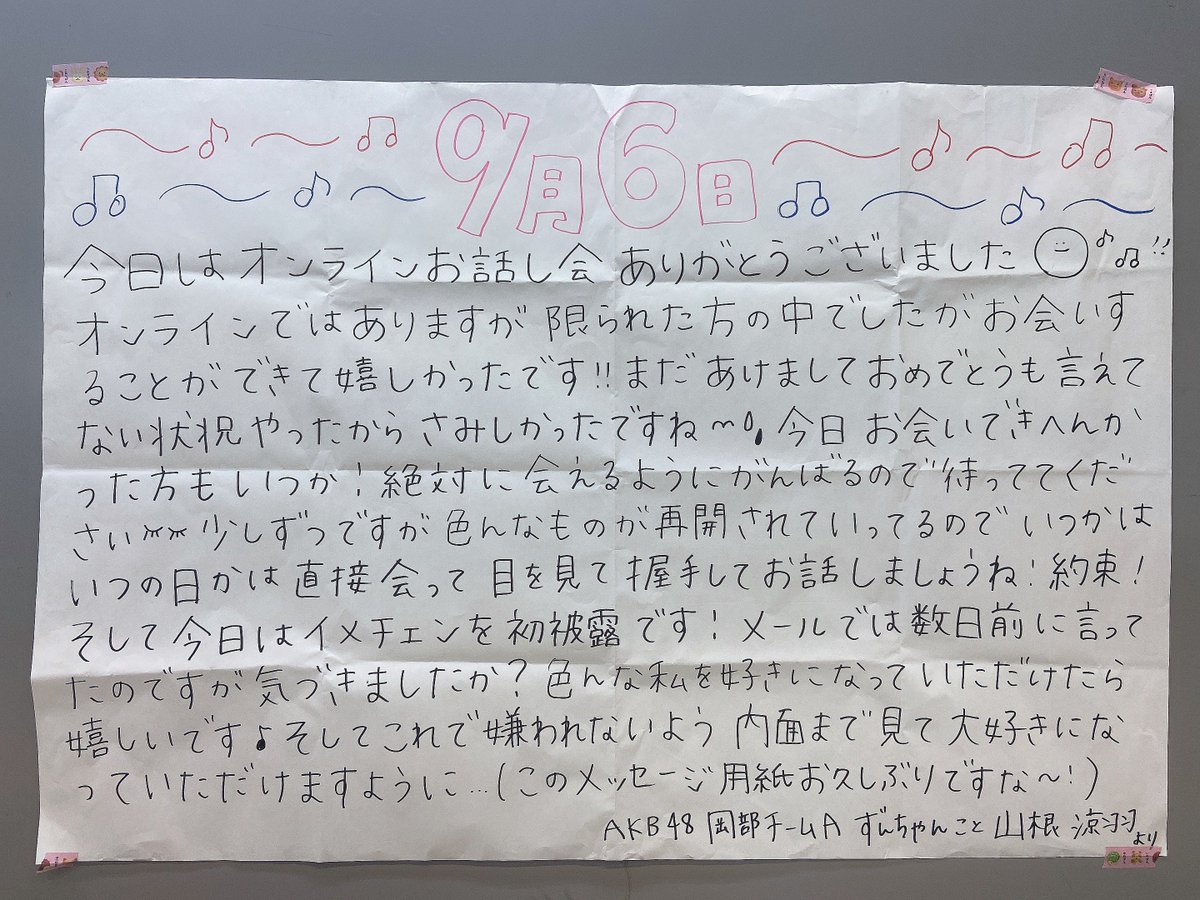 9月6日
今日はオンラインお話し会 ありがとうございました!!
オンラインではありますが 限られた方の中でしたがお会いす
ることができて嬉しかったです!!まだあけましておめでとうも言えて
ない状況やったから さみしかったですね〜 今日 お会いできへんか
った方も いつか!絶対に 会えるようにがんばるので 待っててくだ
さい 少しずつですが 色んなものが 再開されていってるので いつかは
いつの日かは 直接会って 目を見て 握手してお話しましょうね!約束!
そして今日はイメチェンを初被露です!メールでは数日前に言って
たのですが気づきましたか?色んな私を好きになっていただけたら
嬉しいです♪そしてこれで嫌われないよう 内面まで見て大好きにな
っていただけますように…(このメッセージ用紙お久しぶりですな〜!)
AKB48 岡部チームA ずんちゃんこと 山根 涼羽より